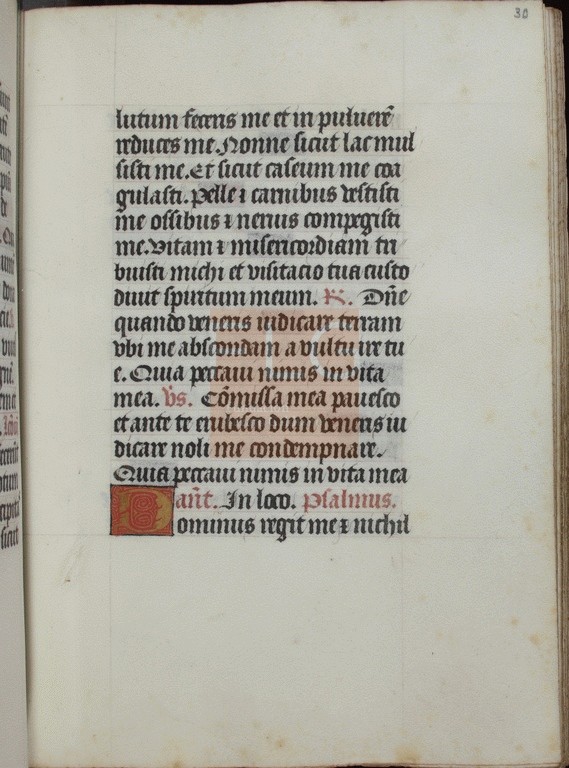 30
lutum feceris me et in puluerē
reduces me. Nonne sicut lac mul
sisti me. Et sicut caseum me coa
gulasti. Pelle ⁊ carnibus vestisti
me ossibus ⁊ neruis compegisti
me. Vitam ⁊ misericordiam tri
buisti michi et visitacio tua custo
diuit spiritum meum. R. Dñe
quando veneris iudicare terram
vbi me abscondam a vultu ire tu
e. Quia peccaui nimis in vita
mea. vs. Cōmissa mea pauesco
et ante te erubesco dum veneris iu
dicare noli me condempnare.
Quia peccaui nimis in vita mea
añt. In loco. Psalmus.
Dominus regit me ⁊ nichil